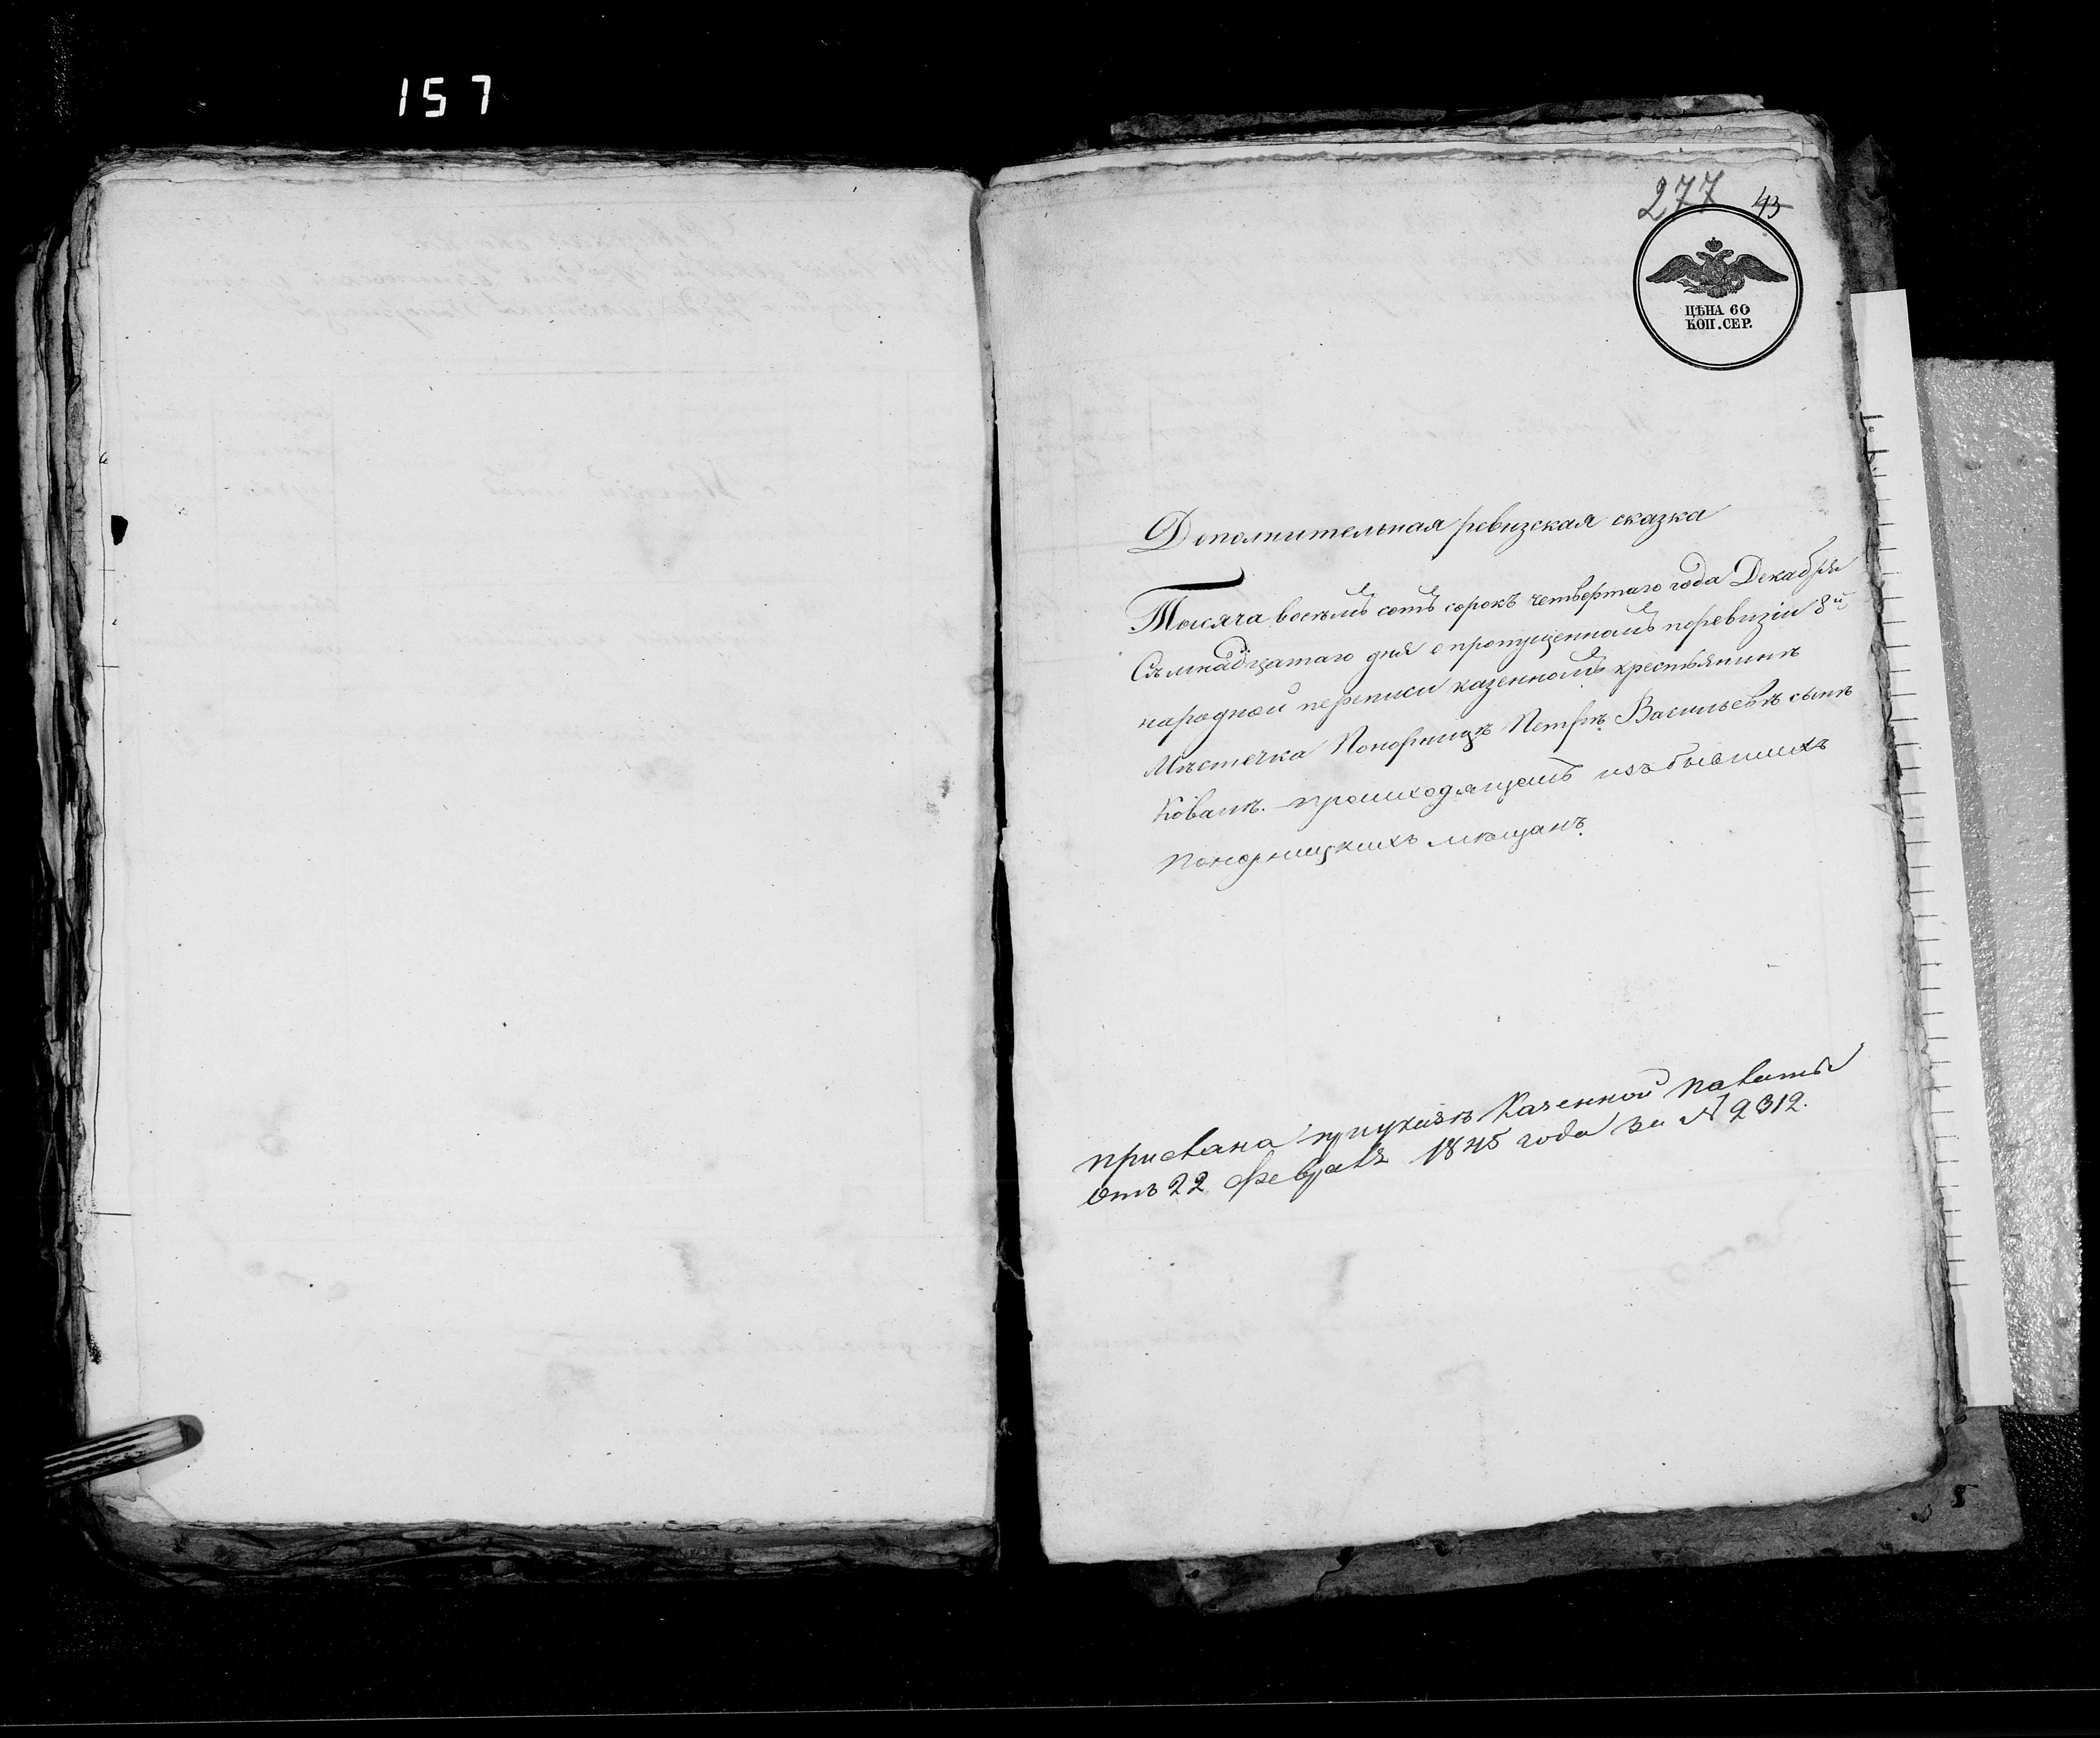 157
277 43
ЦѢНА 60
КОП. СЕР.
Дополнительная ревизская сказка
Тысяча восемь сотъ сорокъ четвертаго года Декабря
Съмнадцатаго дня о пропущенномъ поревизіи 8й
народной переписи казенномъ крестьянинѣ
Мѣстечка Понорницѣ Петрѣ Васильевѣ сынѣ
Ковалѣ. происходящемъ изъ бывшихъ
Понорницкихъ мѣщанъ.
прислана приуказѣ Казенной палаты
Отъ 22 Февраля 1845 года за № 2312.